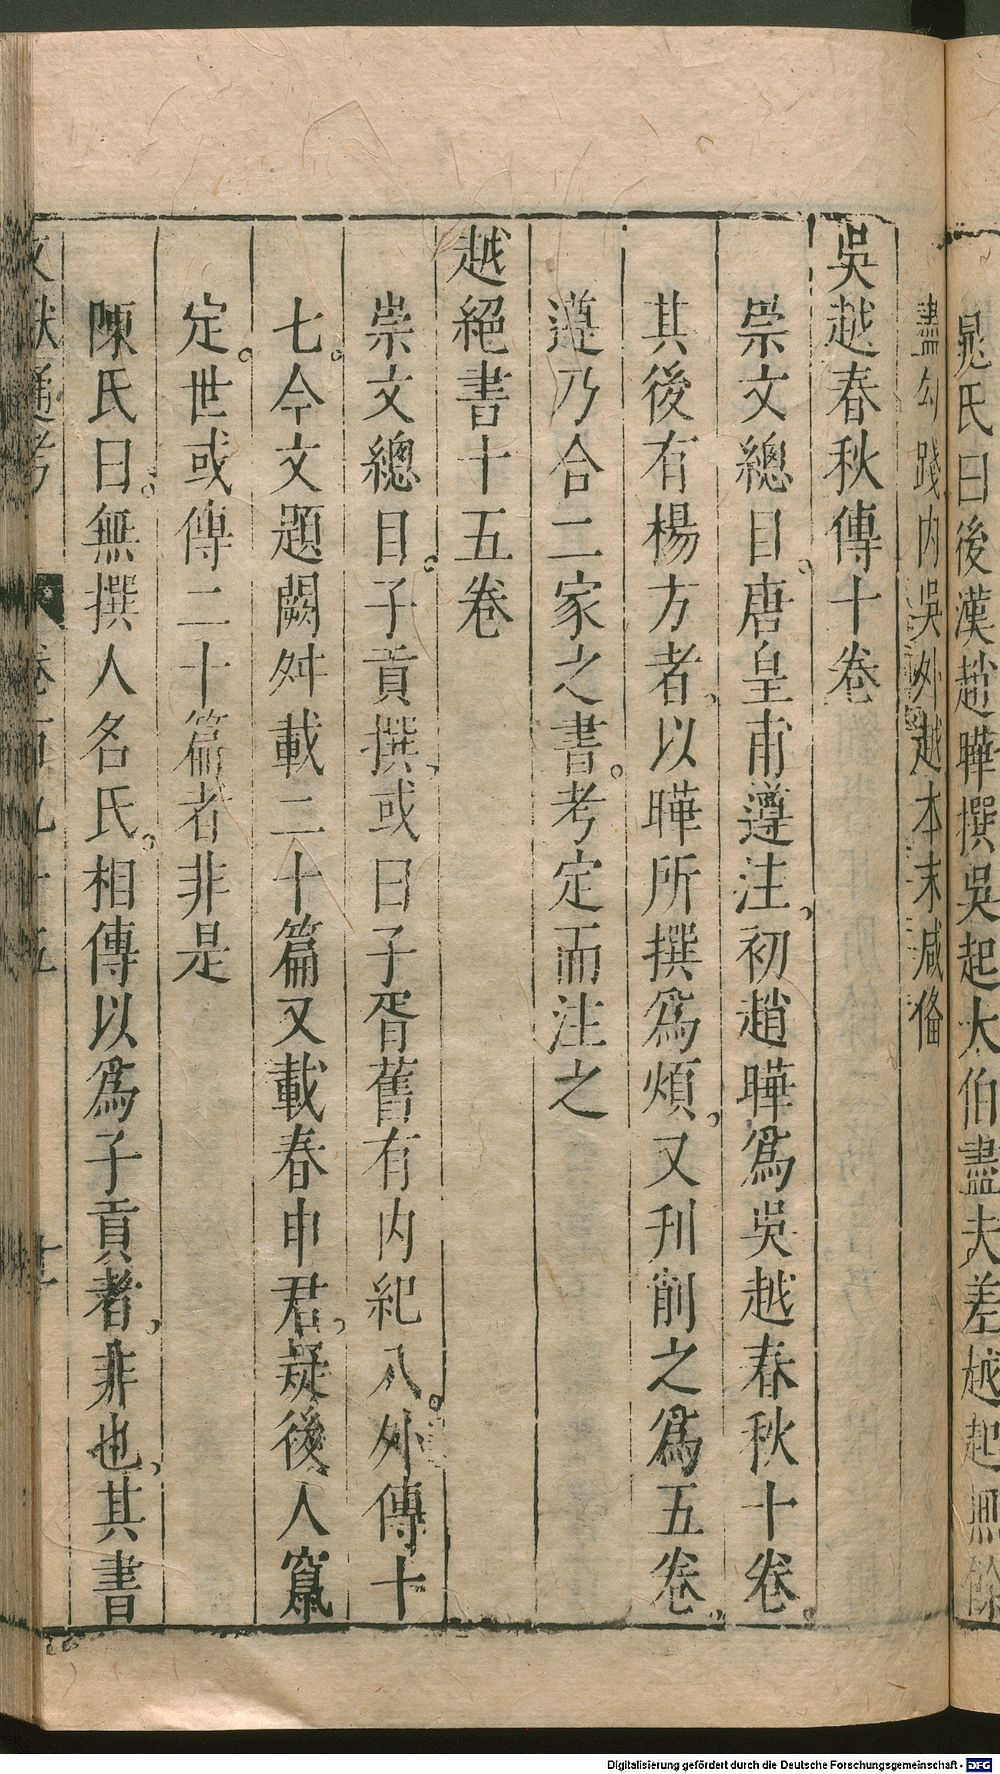 晁氏曰後漢趙曄撰吳起太伯盡夫差越起無餘
盡勾踐內吳外越本末咸俻
吳越春秋傳十卷
崇文總目。唐皇甫遵注,初趙曄爲吳越春秋十卷。
其後有楊方者,以曄所撰爲煩,又刋削之爲五卷。
遵乃合二家之書。考定而注之
越絕書十五卷
崇文總目。子貢撰,或曰子胥舊有內紀八。外傳十
七。今文題闕舛載二十篇又載春申君,疑後人竄
定。世或傳二十篇者非是
陳氏曰。無撰人名氏。相傳以爲子貢者,非也,其書
文獻通考 卷百九十五
Digitalisierung gefördert durch die Deutsche Forschungsgemeinschaft - DFG